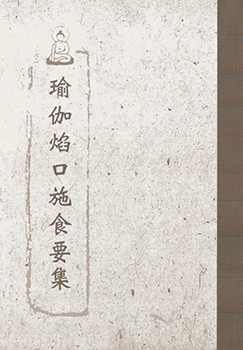 瑜伽焰口施食要集